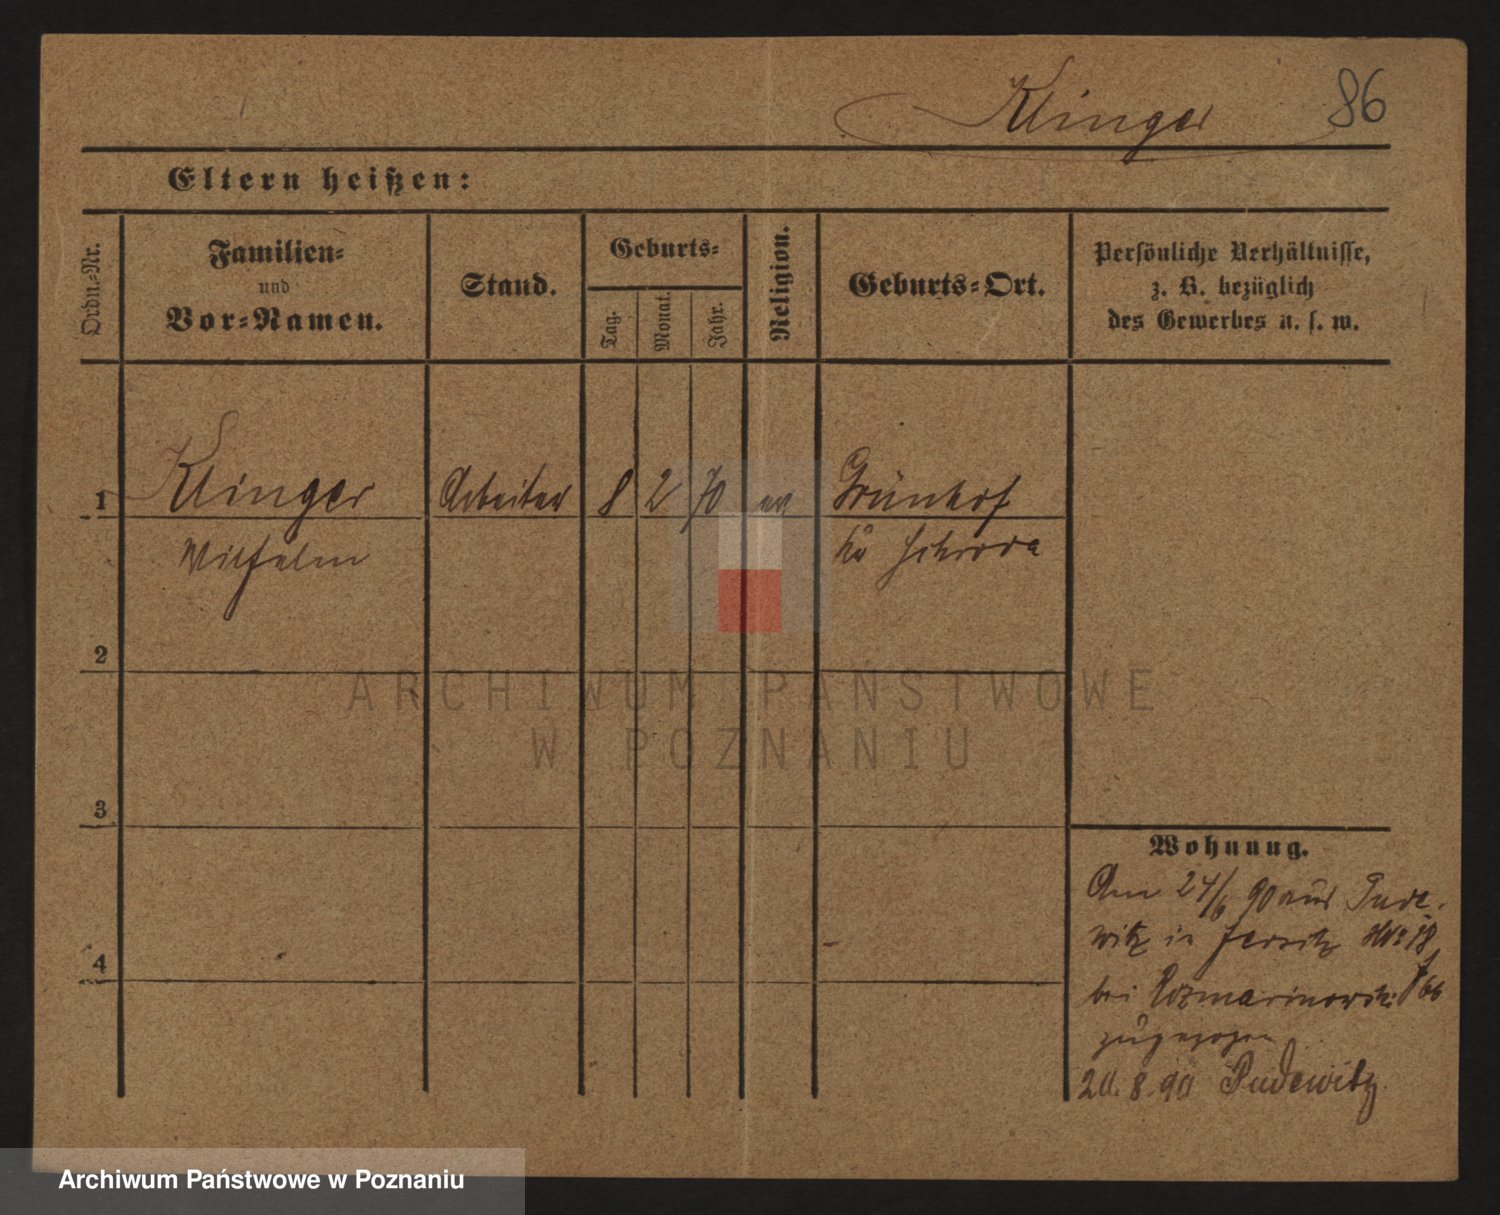 Klinger 86
Eltern heißen:
Ordn.-Nr.
Familien-
und
Vor-Namen.
Stand.
Geburts-
Tag.
Monat.
Jahr.
Religion.
Geburts-Ort.
Persönliche Verhältnisse,
z. B. bezüglich
des Gewerbes u. s. w.
1 Klinger Arbeiter 8 2 70 ev Grünhof
Wilhelm Kr Schroda
2
3
4
Wohnung.
Am 24/6 90 aus Pude-
witz in Jersitz No 18
bei Rozmarinowski 166
zugezogen
20. 8. 90 Pudewitz
ARCHIWUM PAŃSTWOWE
W POZNANIU
Archiwum Państwowe w Poznaniu